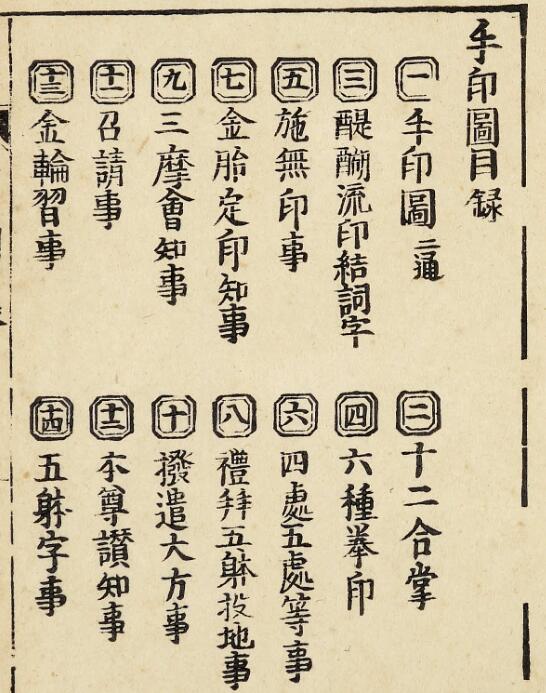 手印圖目録
一 手印圖 二通
二 十二合掌
三 醍醐流印結詞字
四 六種拳印
五 施無印事
六 四處五處等事
七 金胎定印知事
八 禮拜五躰投地事
九 三摩會知事
十 撥遣大方事
十一 召請事
十二 本尊讃知事
十三 金輪習事
十四 五躰字事